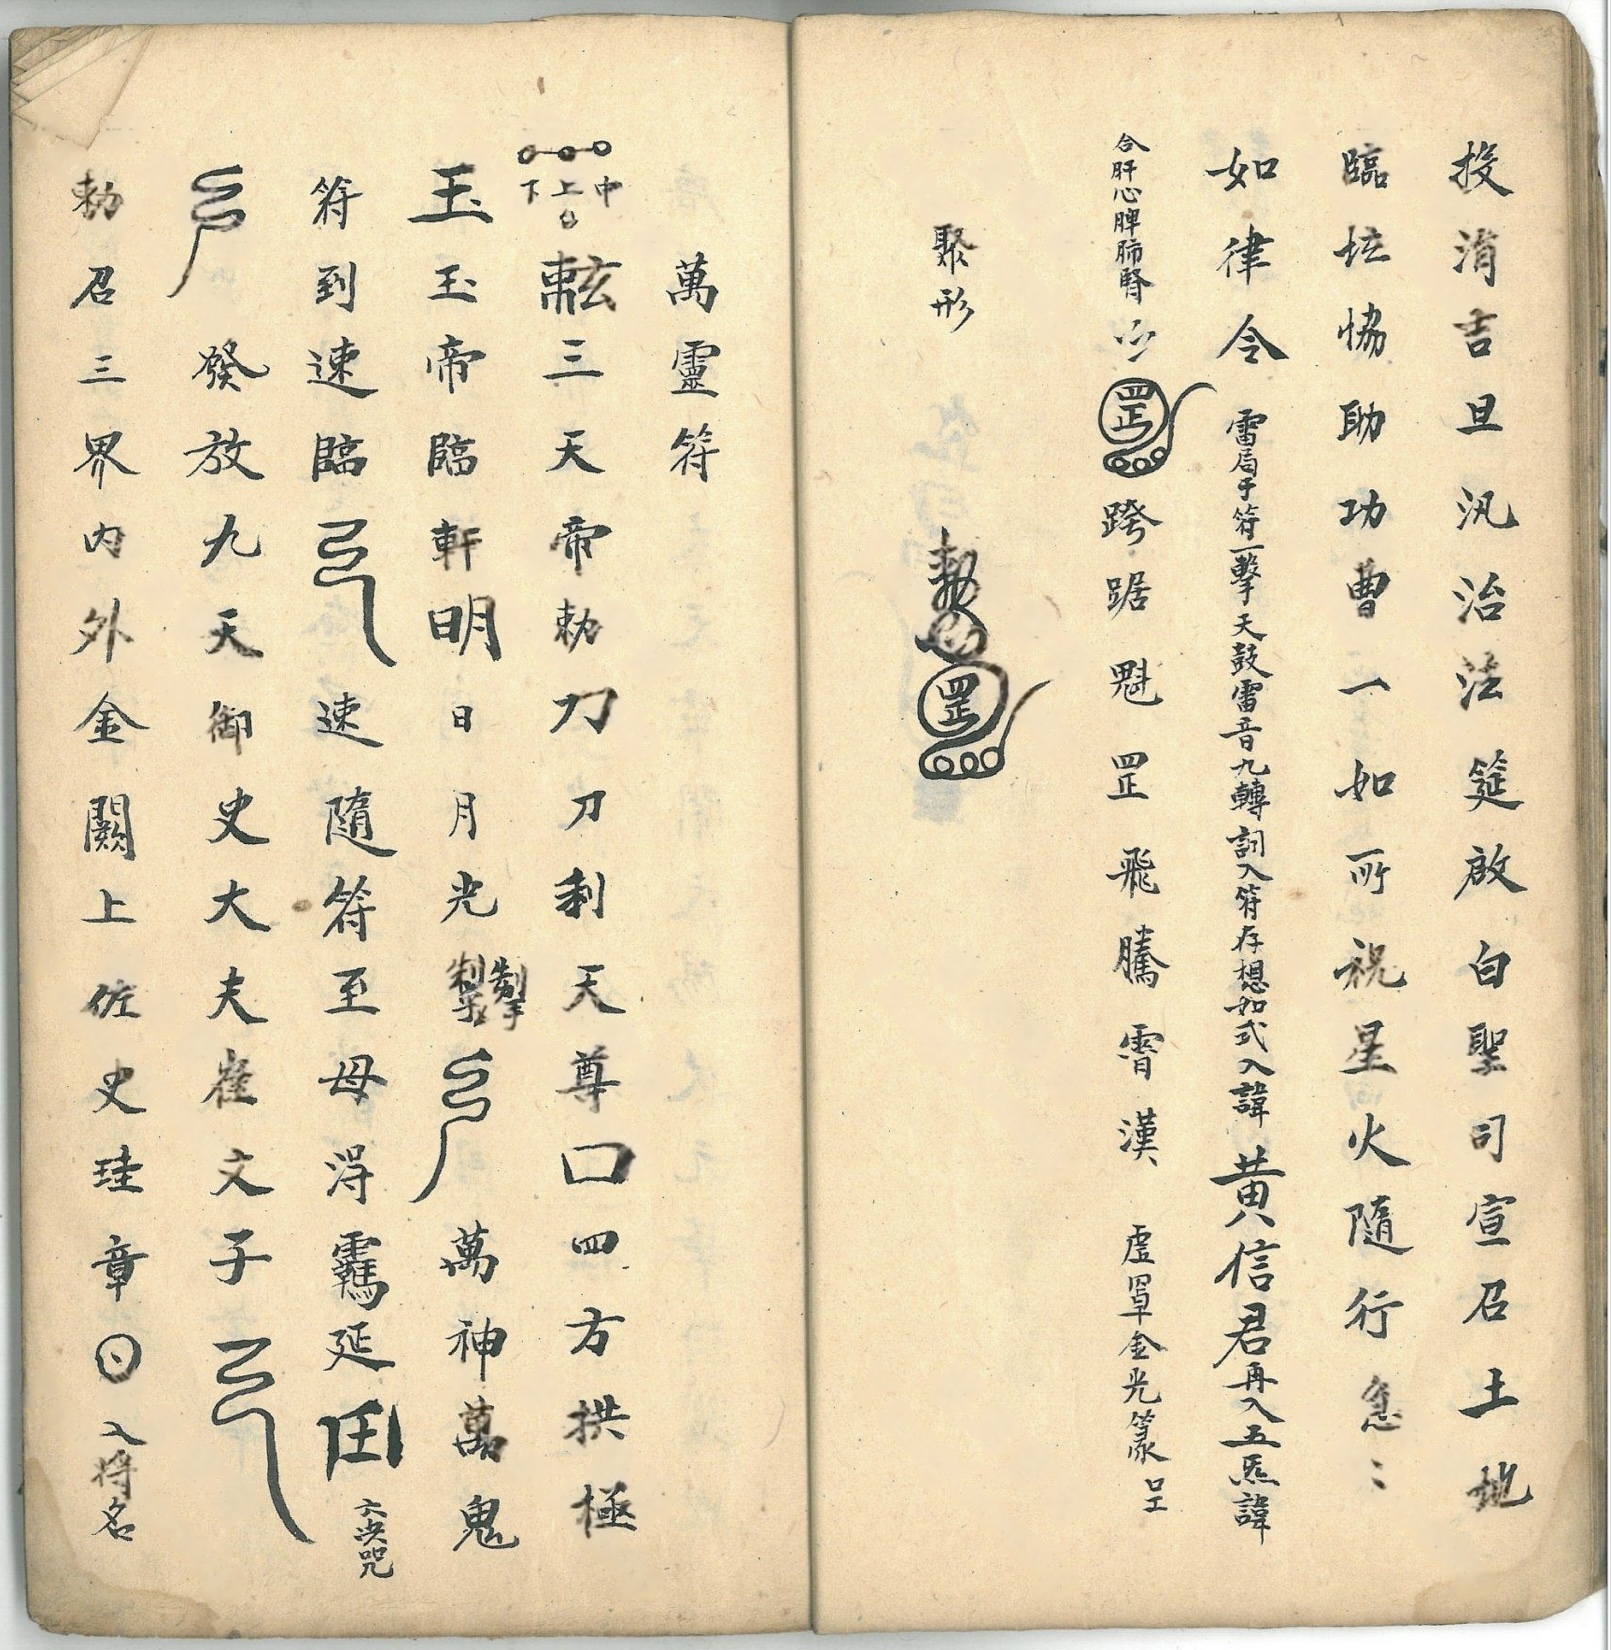 投消吉旦汛治法筵啟白聖司宣召土地
臨坛恊助功曹一如所祝星火隨行急〻
如律令雷局于符一擊天鼓雷音九轉詞入符存想如式入諱黄信君再入五炁諱
合肝心脾肺腎罡跨踞魁罡飛騰霄漢虛罩金光篆
聚形
勅罡
萬靈符
中上下
三天帝勅刀刀利天尊口四方拱極
玉玉帝臨軒明日月光掣掣萬神萬鬼
符到速臨速隨符至毋淂延
發放九天御史大夫崔文子
勅召三界內外金闕上佐史珪章入將名